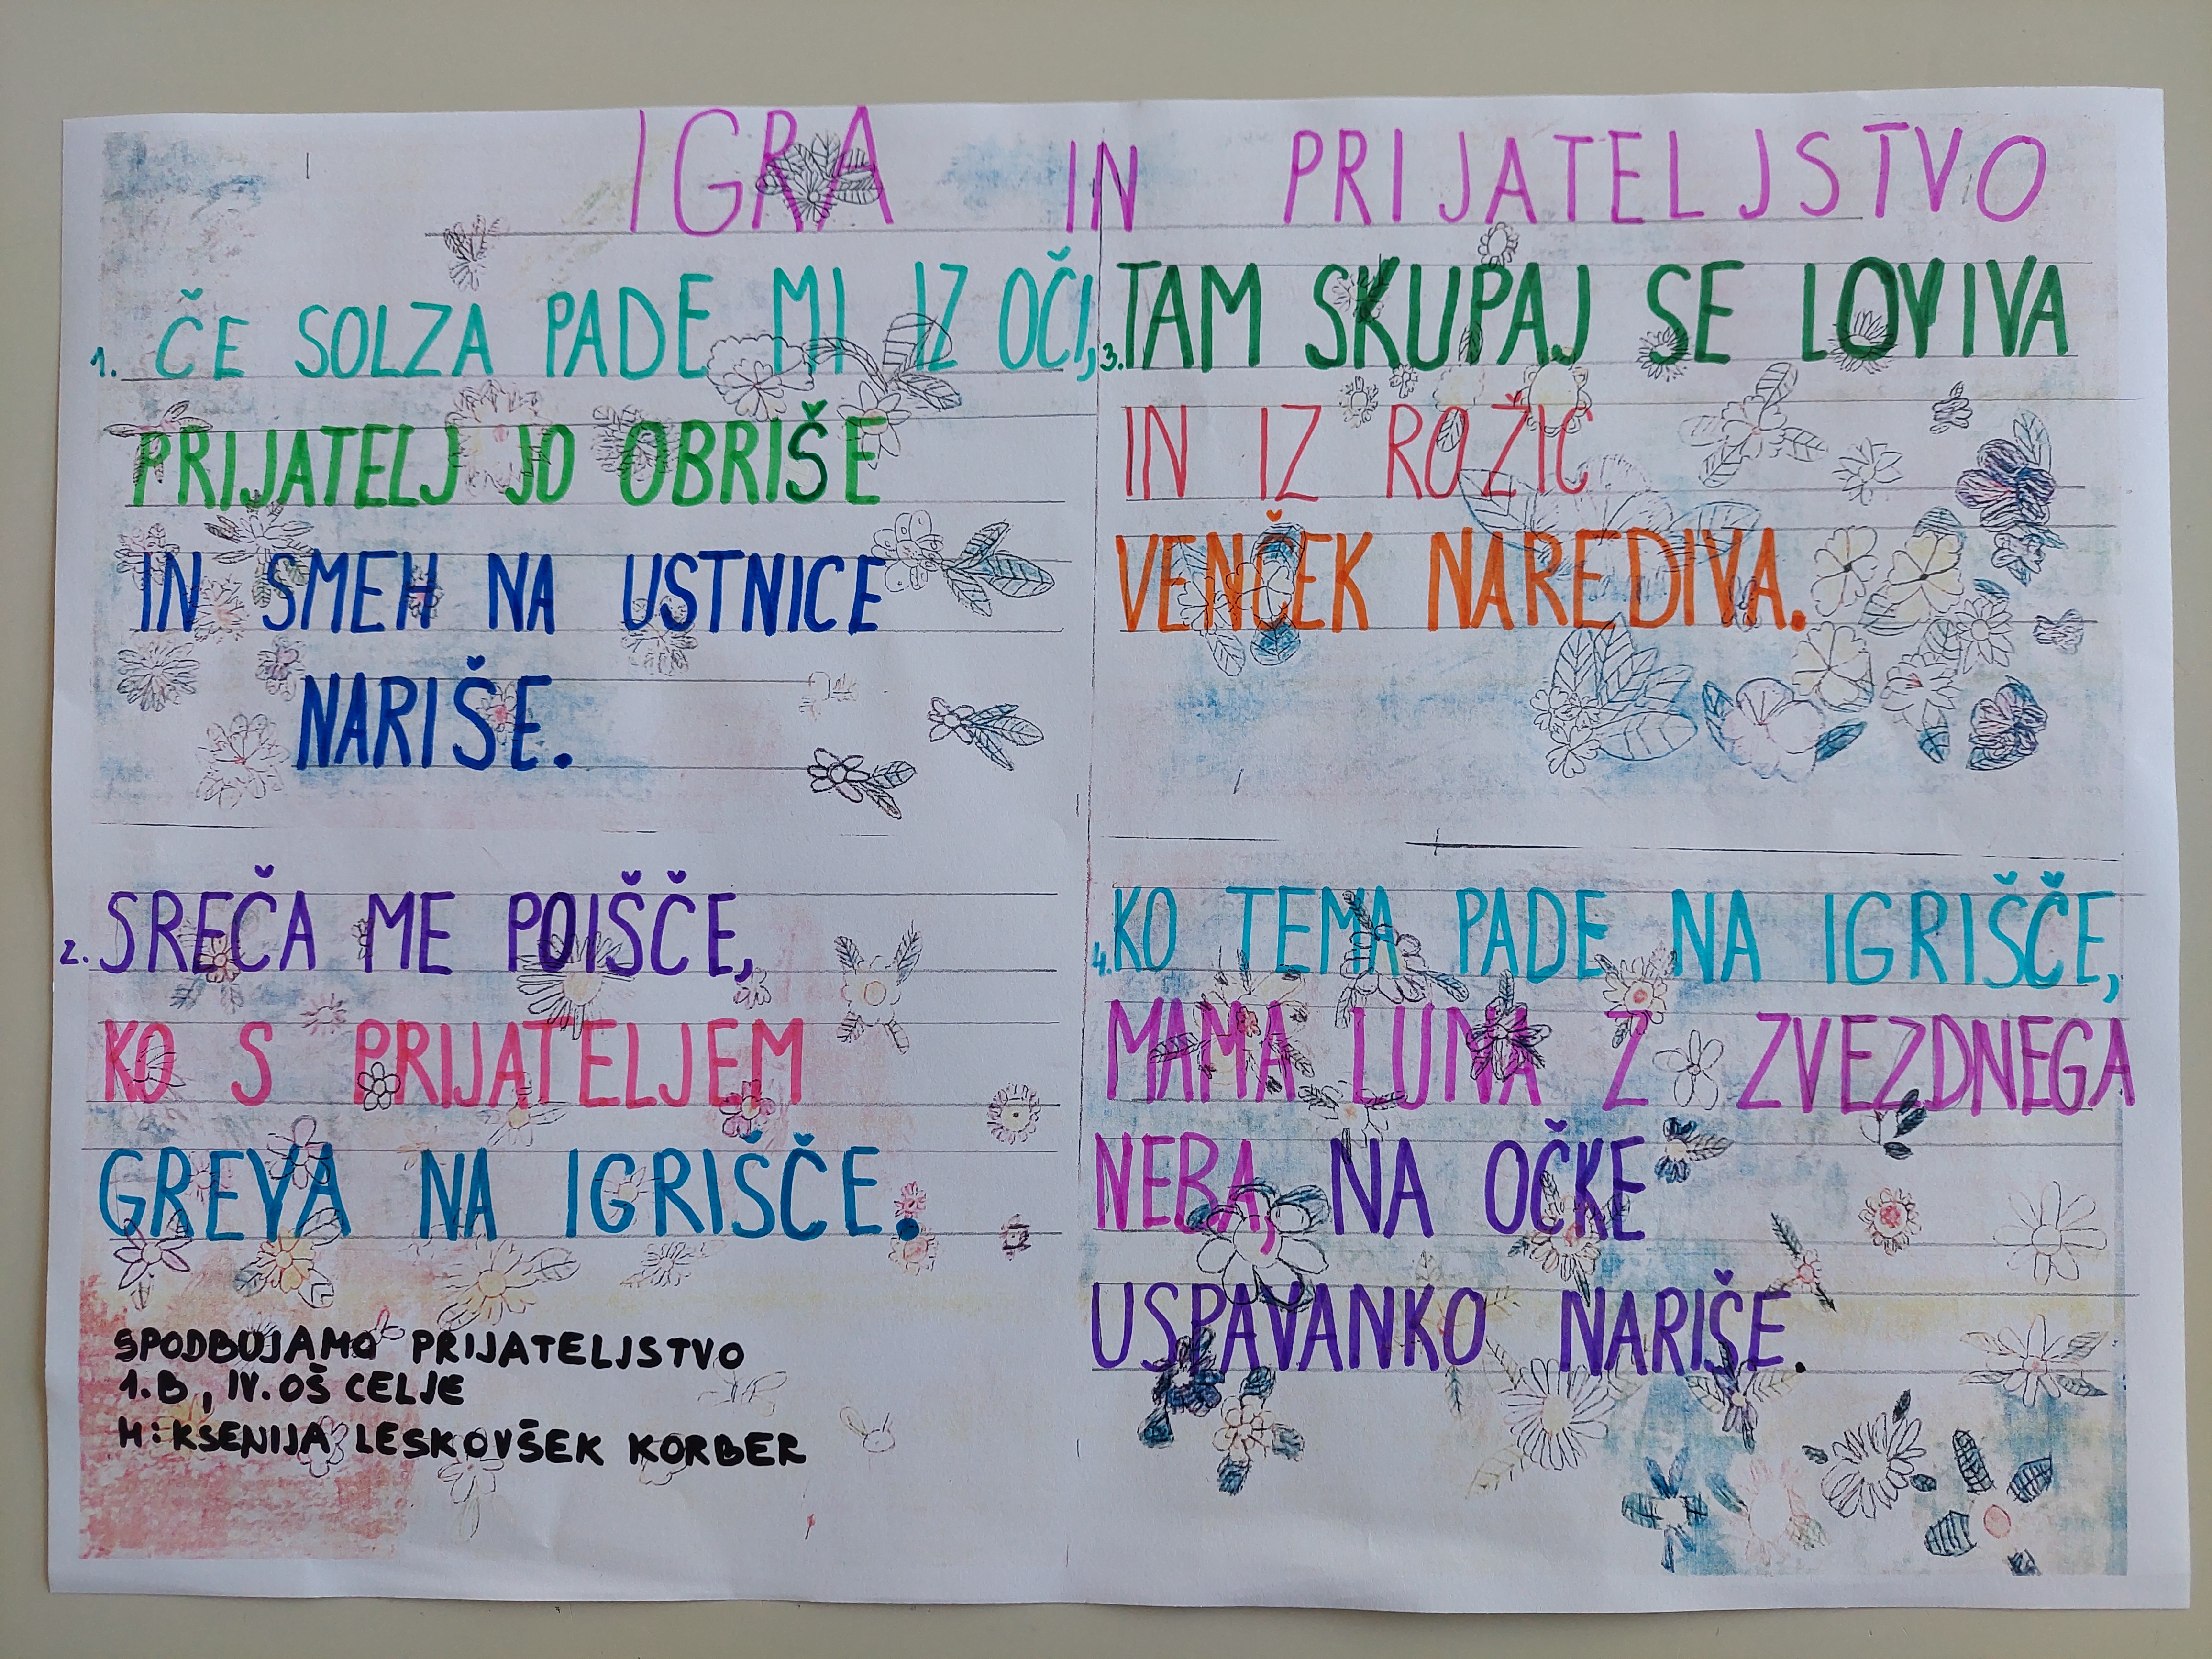 IGRA IN PRIJATELJSTVO
1. ČE SOLZA PADE MI IZ OČI,
PRIJATELJ JO OBRIŠE
IN SMEH NA USTNICE
NARIŠE.
2. SREČA ME POIŠČE,
KO S PRIJATELJEM
GREVA NA IGRIŠČE.
SPODBUJAMO PRIJATELJSTVO
1.B, IV. OŠ CELJE
M: KSENIJA LESKOVŠEK KORBER
3. TAM SKUPAJ SE LOVIVA
IN IZ ROŽIC
VENČEK NAREDIVA.
4. KO TEMA PADE NA IGRIŠČE,
MAMA LUNA Z ZVEZDNEGA
NEBA, NA OČKE
USPAVANKO NARIŠE.